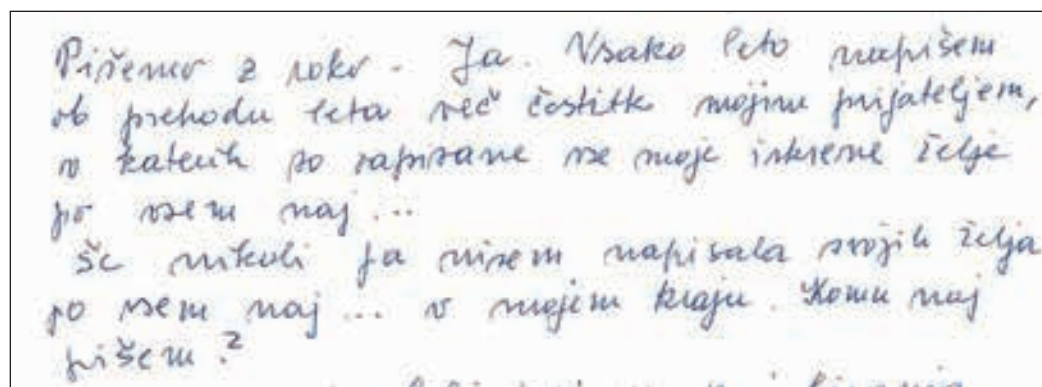 Pišemo z roko. Ja. Vsako leto napišem
ob prehodu leta več čestitk mojim prijateljem,
v katerih so zapisane vse moje iskrene želje
po vsem naj...
Še nikoli pa nisem napisala svojih želja
po vsem naj... v mojem kraju. Komu naj
pišem?